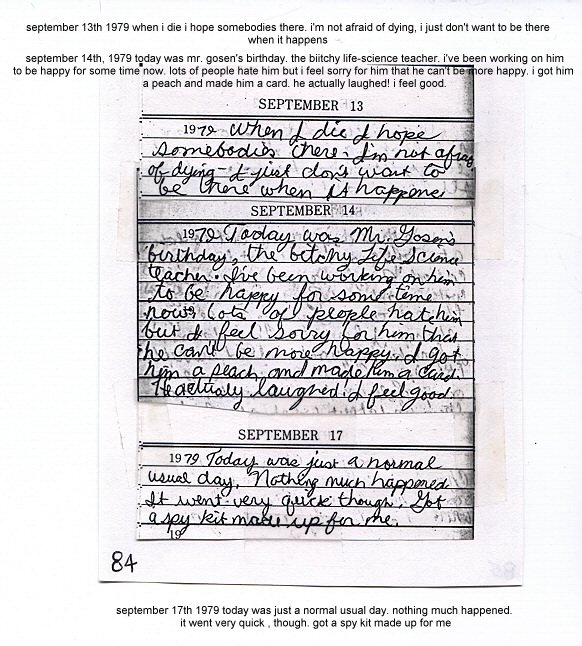 september 13th 1979 when i die i hope somebodies there. i'm not afraid of dying, i just don't want to be there
when it happens
september 14th, 1979 today was mr. gosen's birthday. the biitchy life-science teacher. i've been working on him
to be happy for some time now. lots of people hate him but i feel sorry for him that he can't be more happy. i got him
a peach and made him a card. he actually laughed! i feel good.
SEPTEMBER 13
1979 When I die I hope
somebodies there. I'm not afraid
of dying - I just don't want to
be there when it happens
SEPTEMBER 14
1979 Today was Mr. Gosen's
birthday, the bitchy Life Science
teacher. I've been working on him
to be happy for some time
now. Lots of people hate him
but I feel sorry for him that
he can't be more happy. I got
him a peach and made him a card.
He actually laughed! I feel good
SEPTEMBER 17
1979 Today was just a normal
usual day. Nothing much happened.
It went very quick though. Got
a spy kit made up for me.
19
84
september 17th 1979 today was just a normal usual day. nothing much happened.
it went very quick , though. got a spy kit made up for me